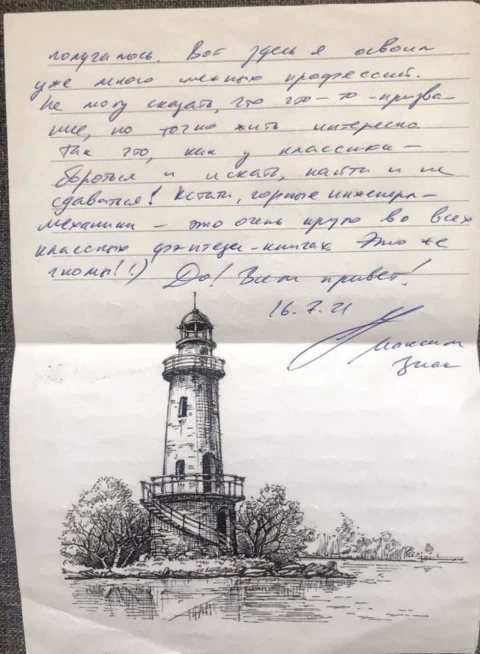 получалось. Вот здесь я освоил
уже много нежных профессий.
Не могу сказать, что это-то - призва-
ние, но точно жить интересно.
Так что, как у классики -
бороться и искать, найти и не
сдаваться! Кстати, горные инженеры-
механики - это очень круто во всех
классных фэнтези-книгах. Это же
гномы!!) До! Всем привет!
16.7.21
Максим